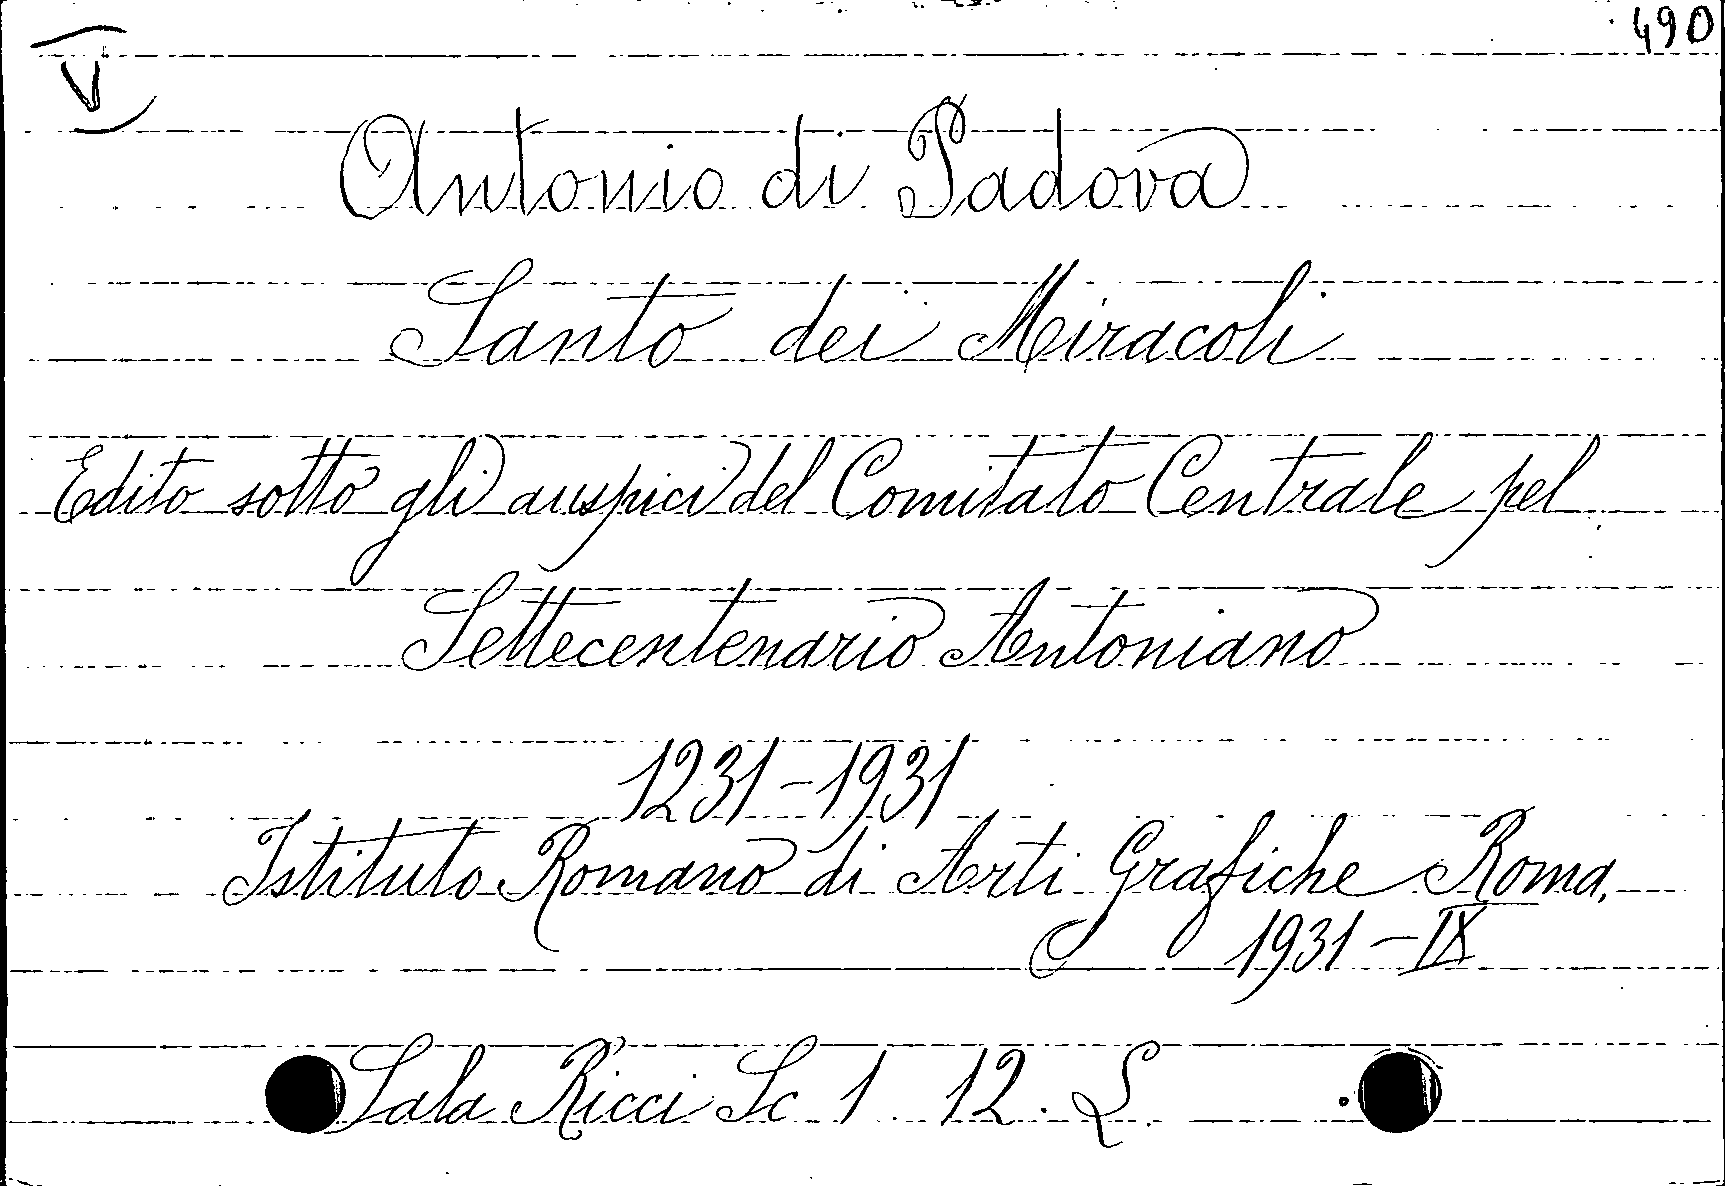 V
490
Antonio di Padova
Santo dei Miracoli
Edito sotto gli auspici del Comitato Centrale pel
Settecentenario Antoniano
1231-1931
Istituto Romano di Arti Grafiche Roma,
1931-IX
Sala Ricci Sc 1 12. L